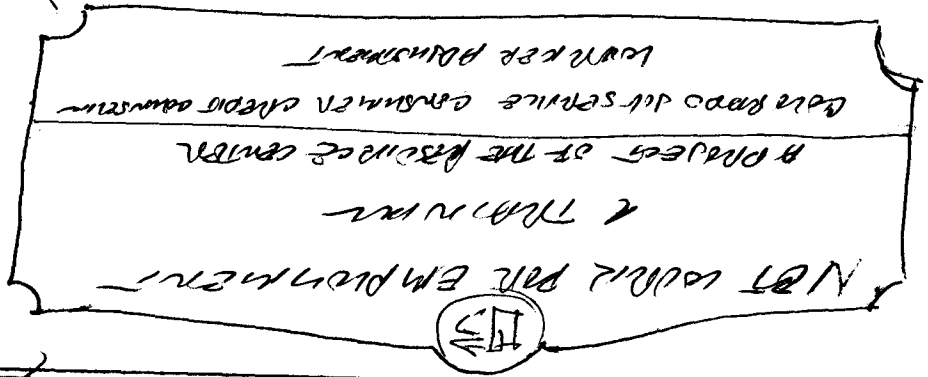 NET WORK FOR EMPLOYMENT
& TRAINING
A PROJECT OF THE RESOURCE CENTER
COLORADO JOB SERVICE CONSUMER CREDIT
WORKER ADJUSTMENT